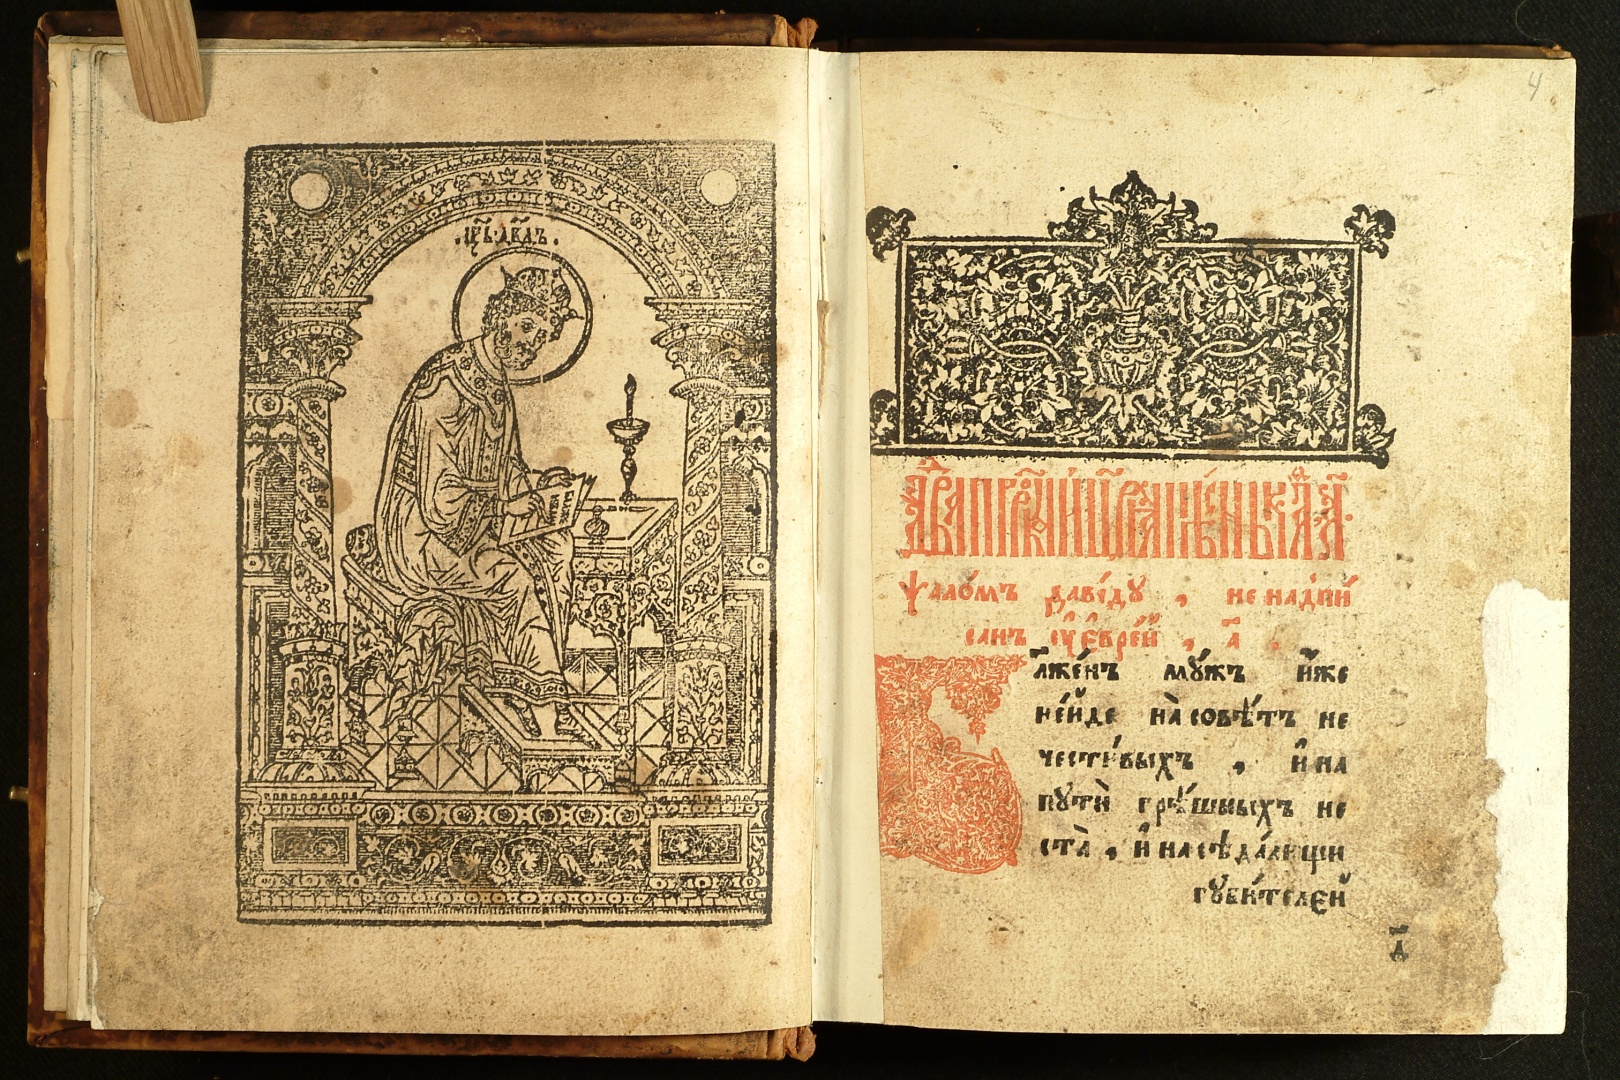 .цр҃ь.дв҃дъ.
4
ѱало́мъ дави́ду , не надпи́
санъ ѹ҆ е҆врє́й , а҃ .
Бл҃же́нъ мꙋ́жъ и҆́же
не и҆́де на̀ совѣ́тъ не
чести́выхъ , и҆ на
пꙋтѝ грѣ́шныхъ не
ста̀ , и҆ на сѣда́лищи
гꙋби́телєй
д҃